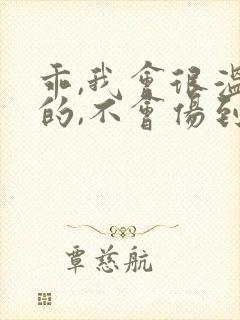 乖,我會很溫
的,不會傷到
覃慈航